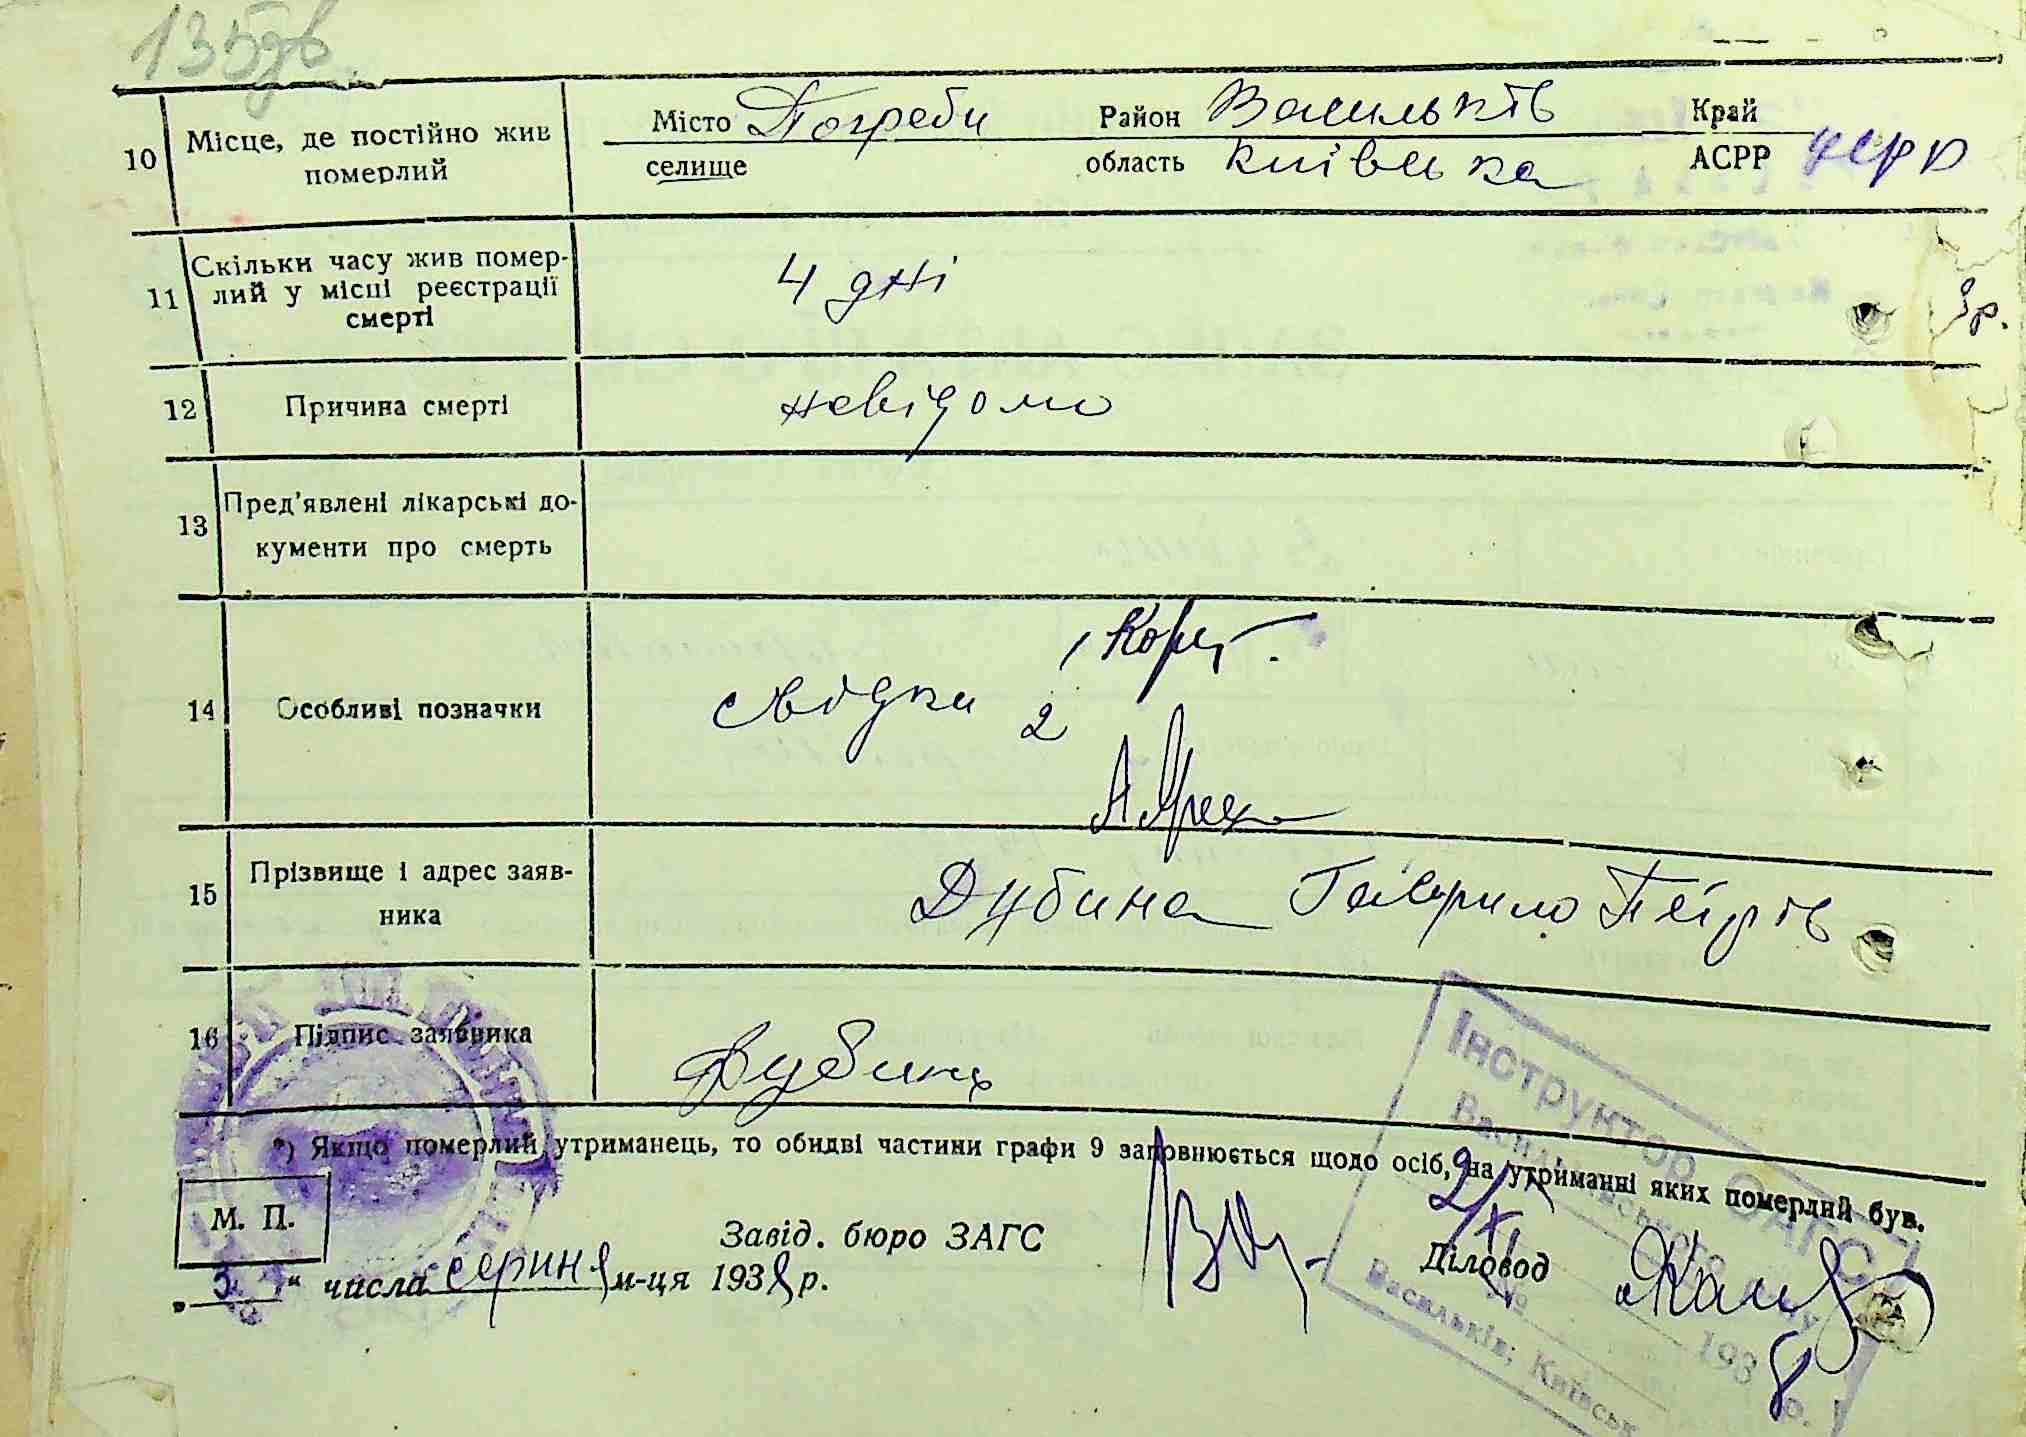 135зв
10 Місце, де постійно жив Місто Погреби Район Васильків Край
померлий селище область Київська АСРР УСРР
11 Скільки часу жив помер-
лий у місці реєстрації 4 дні
смерті
3р.
12 Причина смерті невідомо
13 Пред'явлені лікарські до-
кументи про смерть
1
14 Особливі позначки свідки 2
15 Прізвище і адрес заяв- Дубина Гаврило Петрів
ника
16 Підпис заявника Дубина
*) Якщо померлий утриманець, то обидві частини графи 9 заповнюється щодо осіб, на утриманні яких померлий був.
М. П.
Завід. бюро ЗАГС Діловод
„ 3 " числа серпня м-ця 1938 р.
Інструктор ОАГС
Васильківського
2/XI 1938 р.
Васильків, Київськ